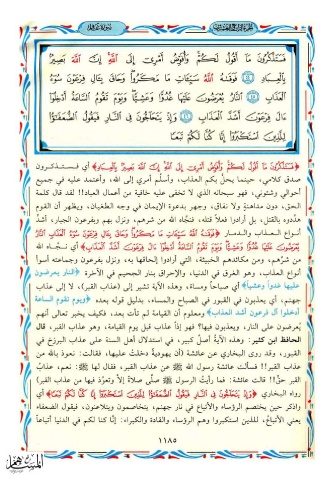 فَسَتَذْكُرُونَ مَا أَقُولُ لَكُمْ وَأُفَوِّضُ أَمْرِي إِلَى اللَّهِ إِنَّ اللَّهَ بَصِيرٌ
بِالْعِبَادِ ﴿٤٤﴾ فَوَقَاهُ اللَّهُ سَيِّئَاتِ مَا مَكَرُوا وَحَاقَ بِآلِ فِرْعَوْنَ سُوءُ
الْعَذَابِ ﴿٤٥﴾ النَّارُ يُعْرَضُونَ عَلَيْهَا غُدُوًّا وَعَشِيًّا وَيَوْمَ تَقُومُ السَّاعَةُ أَدْخِلُوا
آلَ فِرْعَوْنَ أَشَدَّ الْعَذَابِ ﴿٤٦﴾ وَإِذْ يَتَحَاجُّونَ فِي النَّارِ فَيَقُولُ الضُّعَفَاءُ
لِلَّذِينَ اسْتَكْبَرُوا إِنَّا كُنَّا لَكُمْ تَبَعًا
﴿فَسَتَذْكُرُونَ مَا أَقُولُ لَكُمْ وَأُفَوِّضُ أَمْرِي إِلَى اللَّهِ إِنَّ اللَّهَ بَصِيرٌ بِالْعِبَادِ﴾ أي فستذكرون
صدق كلامي، حينما يحلّ بكم العذاب، وأسلّم أمري إلى الله، وأعتمد عليه في جميع
أحوالي وشئوني، فهو سبحانه الذي لا تخفى عليه خافية من أعمال العباد!! لقد قال كلمة
الحق، دون مداهنةٍ ولا نفاق، وجهر بدعوة الإيمان في وجه الطغيان، ويظهر أن القوم
هدّدوه بالقتل، بل أرادوا فعلاً قتله، فنجّاه الله من شرّهم، ونزل بهم وبفرعون الجبار، أشدّ
أنواع العذاب والدمار ﴿فَوَقَاهُ اللَّهُ سَيِّئَاتِ مَا مَكَرُوا وَحَاقَ بِآلِ فِرْعَوْنَ سُوءُ الْعَذَابِ النَّارُ
يُعْرَضُونَ عَلَيْهَا غُدُوًّا وَعَشِيًّا وَيَوْمَ تَقُومُ السَّاعَةُ أَدْخِلُوا آلَ فِرْعَوْنَ أَشَدَّ الْعَذَابِ﴾ أي نجّاه الله
من شرّهم، ومن مكائدهم الخبيثة، التي أرادوا إلحاقها به، ونزل بفرعون وجماعته أسوأ
أنواع العذاب، وهو الغرق في الدنيا، والإحراق بنار الجحيم في الآخرة ﴿النار يعرضون
عليها غدواً وعشياً﴾ أي صباحاً ومساءً، وهذه الآية تشير إلى (عذاب القبر)، لا إلى عذاب
جهنم، أي يعذبون في القبور في الصباح والمساء، بدليل قوله بعده ﴿ويوم تقوم الساعة
أدخلوا آل فرعون أشد العذاب﴾ ومعلوم أن القيامة لم تأت بعد، فكيف يخبر تعالى أنهم
يُعرضون على النار، ويعذبون فيها؟ فهو إذاً عذاب قبل يوم القيامة، وهو عذاب القبر، قال
الحافظ ابن كثير: وهذه الآية أصلٌ كبير، في استدلال أهل السنة على عذاب البرزخ في
القبور، وقد روى البخاري عن عائشة (أن يهودية دخلت عليها، فقالت: نعوذ بالله من
عذاب القبر!! فسألت عائشة رسول الله ﷺ عن عذاب القبر، فقال لها ﷺ: نعم، عذاب
القبر حقٌ!! قالت عائشة: فما رأيت الرسول ﷺ صلى صلاةً إلاّ وتعوّذ فيها من عذاب القبر)
رواه البخاري ﴿وَإِذْ يَتَحَاجُّونَ فِي النَّارِ فَيَقُولُ الضُّعَفَاءُ لِلَّذِينَ اسْتَكْبَرُوا إِنَّا كُنَّا لَكُمْ تَبَعًا﴾ أي
واذكر حين يختصم الرؤساء والأتباع في نار جهنم، يتخاصمون ويتلاعنون، فيقول الضعفاء
يعني الأتباعُ، للذين استكبروا وهم الرؤساء والقادة والكبراء: إنّا كنّا لكم في الدنيا أتباعاً
١١٨٥